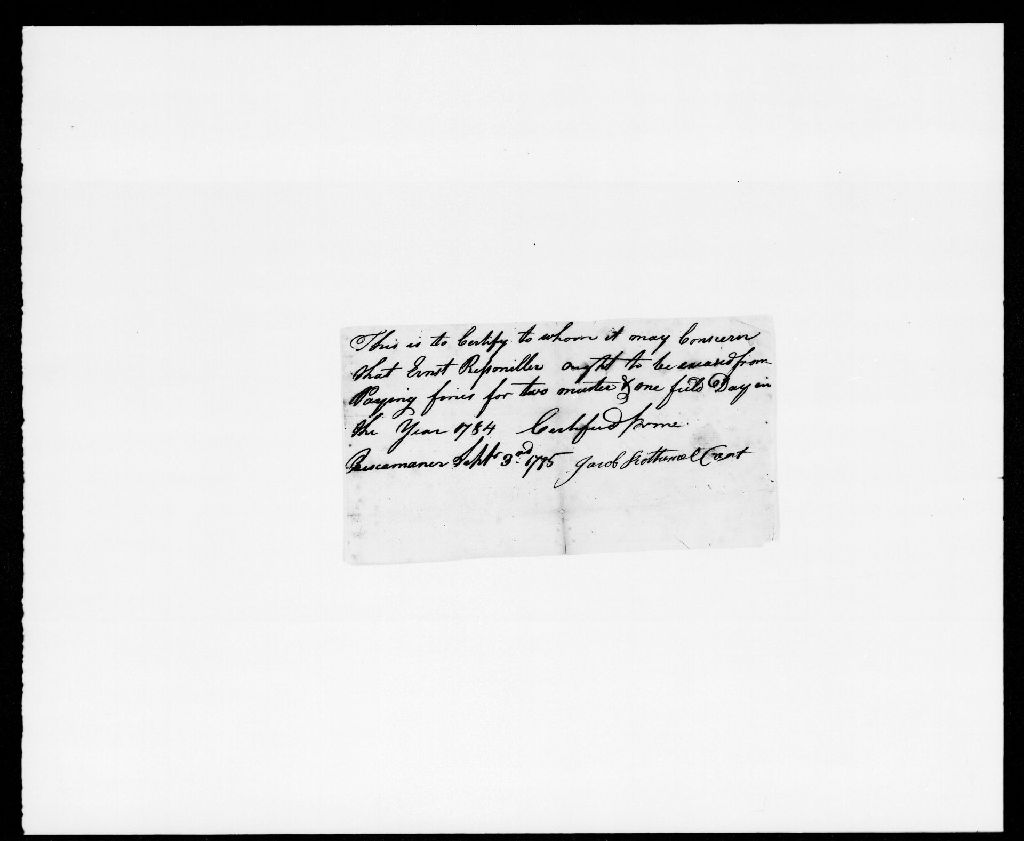 This is to Certify to whom it may Concern
that Ernst Repsmiller ought to be excused from
Paying fines for two muster & one field Day in
the Year 1784 Certified by me
Sept 3rd 1795 Jacob Capt